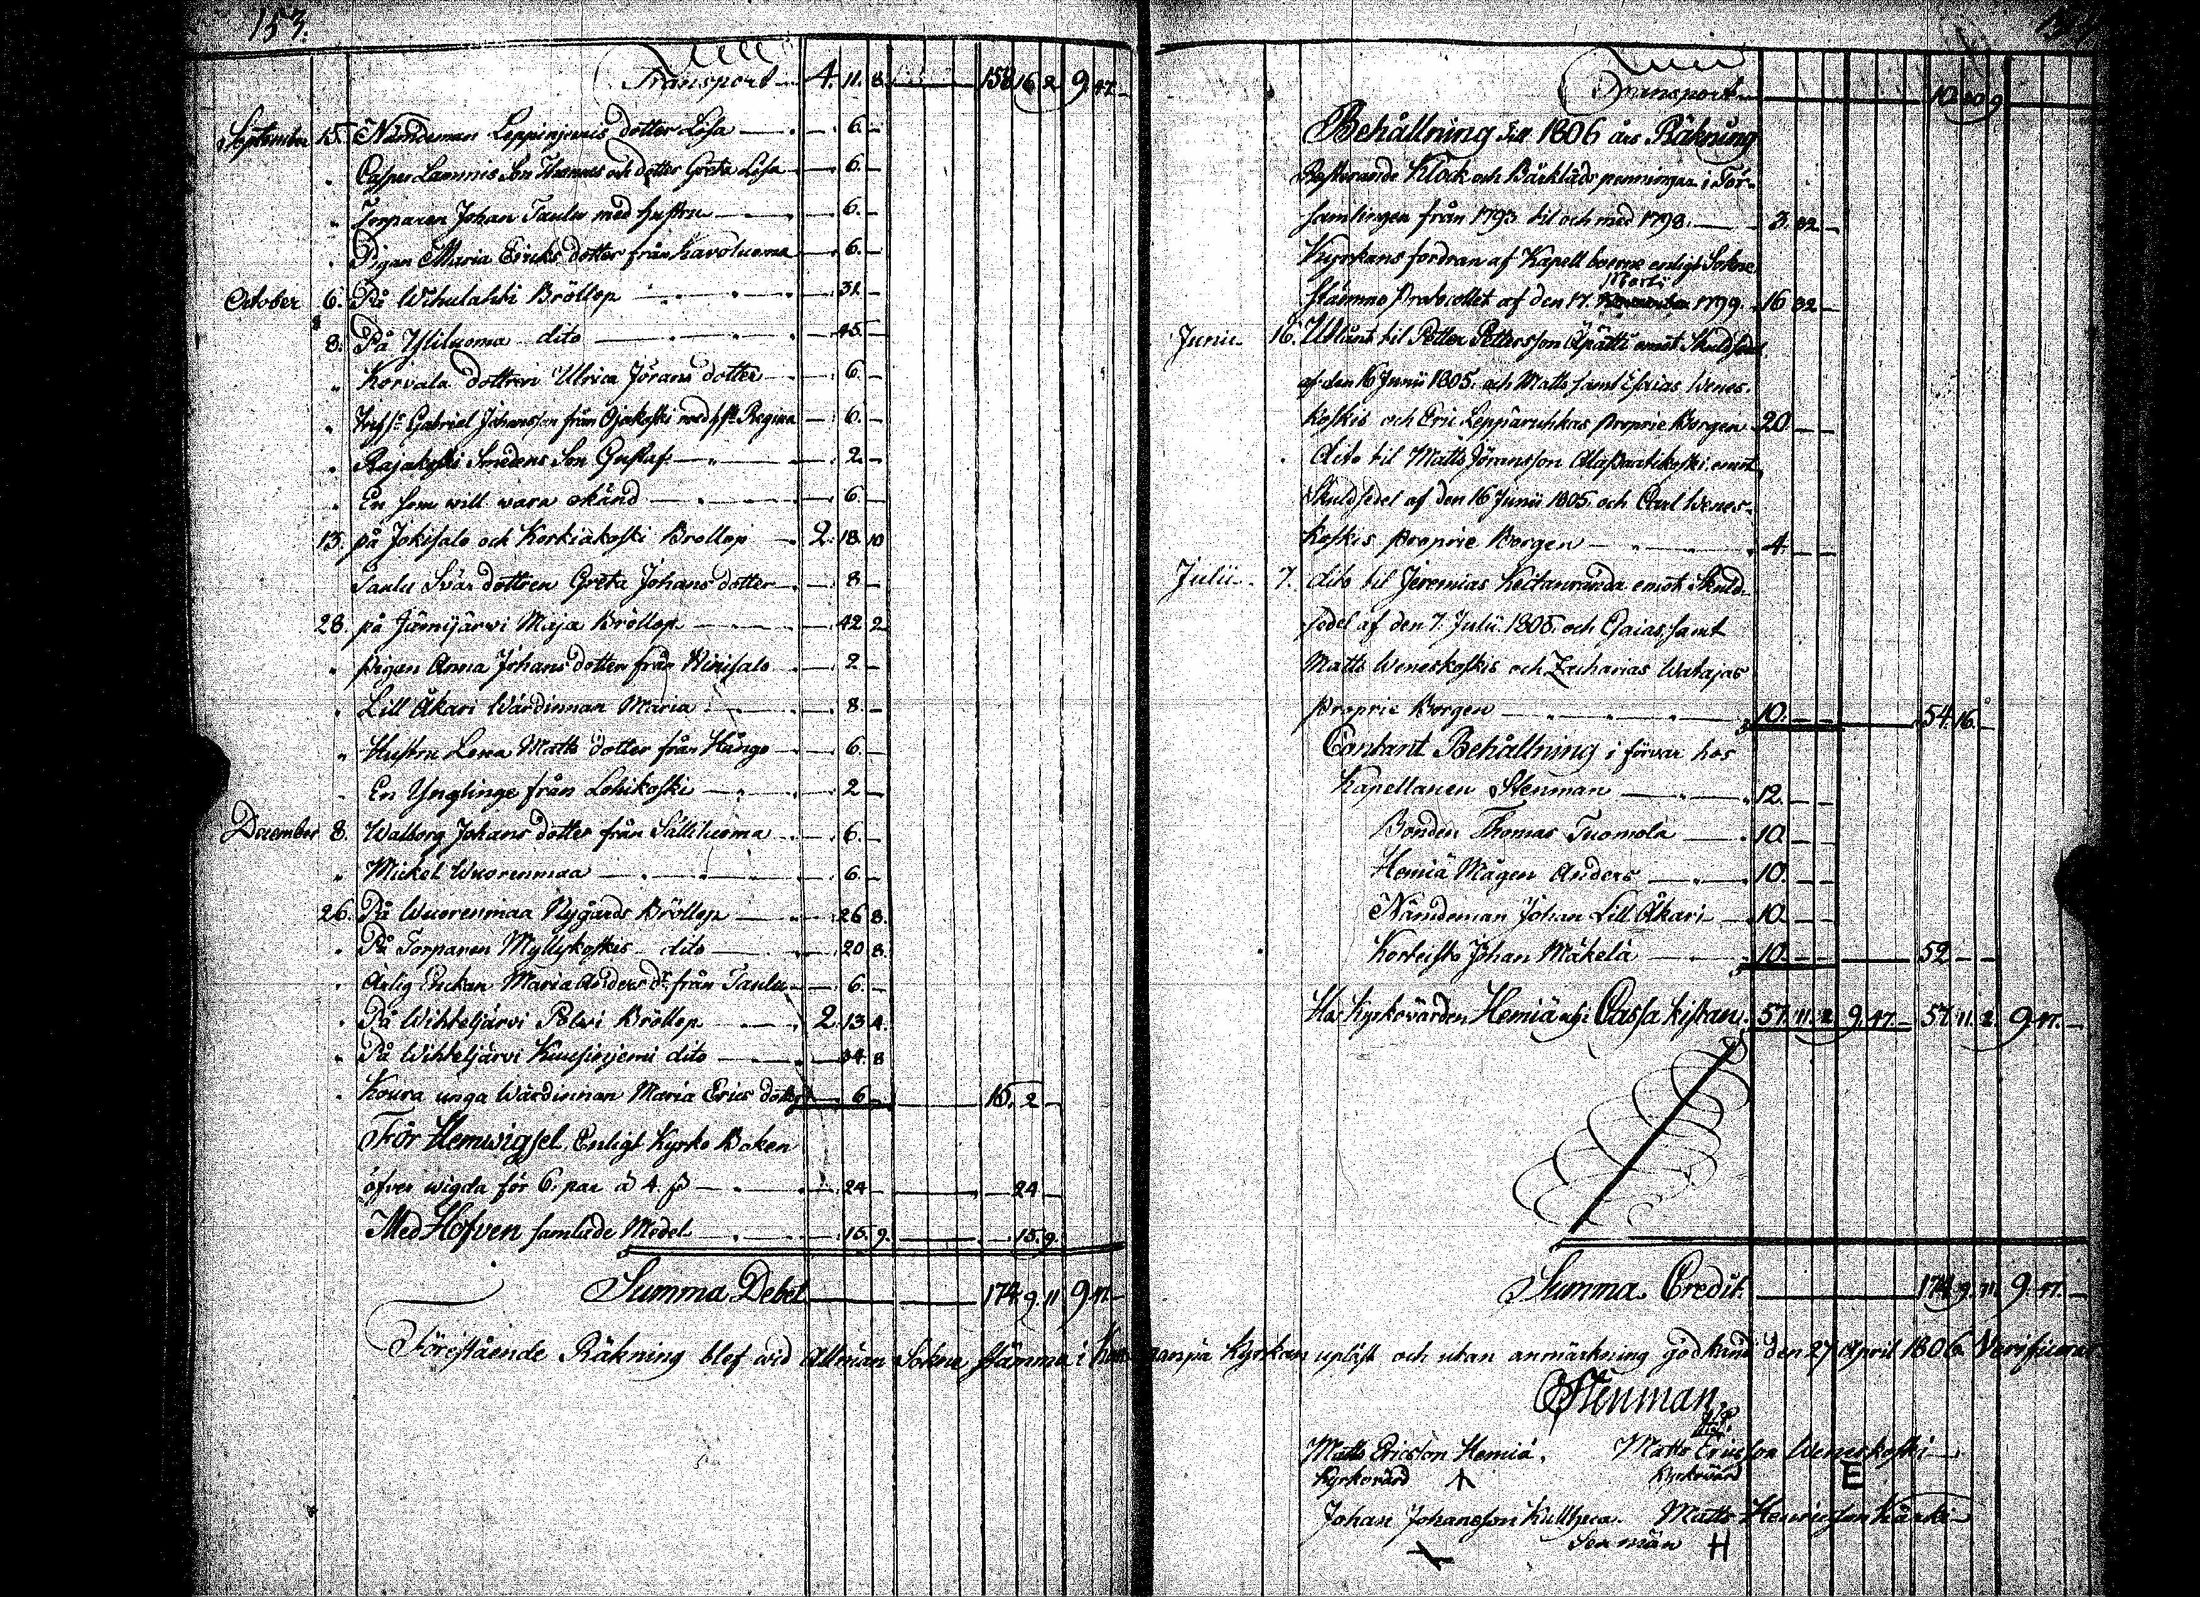 153.
Transport 4. 11. 8. 158 16 2 9. 47.
September 15. Nämdeman Leppinjemis dotter Lisa 6.
Casper Lammis Son Thomas och dotter Greta Lisa 6.
Torparen Johan Taulu med hustru 6.
Pigan Maria Ericks dotter från Karvoluoma 6.
October 6. På Wihulahti Bröllop 31.
8. På Yliluoma dito 45.
Korvala dottren Ulrica Jörans dotter 6.
Gabriel Johansson från Ojakoski med Regina 6.
Rajakoski Smedens Son Gustaf 2
En som will wara okänd 6.
13. på Jokisalo och Korkiakoski Bröllop 2. 18. 10
Taulu Svär dottren Greta Johans dotter 8.
28. på Jämijärvi Maja Bröllop 42 2
Pigan Anna Johans dotter från 2
Lill Åkari Wärdinnan Maria 8.
Hustru Lena Matts dotter från Hånge 6.
En Ynglinge från Lohikoski 2
December 8. Walborg Johans dotter från Sältiluoma 6.
Mickel Wuorenmaa 6.
26. På Wuorenmaa Nygårds Bröllop 26 8.
På Torparen Myllykoskis dito 20 8.
Ärlig Enckan Maria Anders dr från Taulu 6.
På Wihteljärvi Polvi Bröllop 2. 13 4.
På Wihteljärvi Kuusinjemi dito 34. 8
Koura unga Wärdinnan Maria Erics dotter 6 15. 2
För Hemwigsel, Enligt Kyrko Boken
öfver wigda för 6. par à 4. ß 24 24
Med Håfven samlade Medel 15. 9. 15. 9.
Summa Debet 174. 9. 11 9. 47.
Transport 10. 20 9
Behållning till 1806 års Räkning
Resterande Klock och Bårkläds penningar i För-
samlingen från 1793 til och med 1798. 3. 32
Kyrkans fordran af Kapell boerne enligt Sokne
Martii
Stämmo Protocollet af den 17. 1799. 16 32
Junii 16. Utlånt til Petter Pettersson Alpätti emot Skuldsedel
af den 16 Junii 1805. och Matts samt Esaias Wenes-
koskis och Eric Leppäruhkas proprie Borgen 20
dito til Matts Jöransson emot
Skuldsedel af den 16 Junii 1805. och Carl Wenes-
koskis proprie Borgen 4.
Julii 7. dito til Jeremias Keitanranda emot Skuld-
sedel af den 7. Julii 1805. och Esaias samt
Matts Weneskoskis och Zacharias Watajas
proprie Borgen 10. 54. 16.
Contant Behållning i förvar hos
Kapellanen Stenman 12.
Bonden Thomas Tuomola 10.
Hemiä Mågen Anders 10.
Nämdeman Johan Lill Åkari 10.
Johan Mäkelä 10. 52
Hos Kyrkovärden Hemiä uti Cassa Kistan. 57. 11. 2 9. 47. 57. 11. 2. 9. 47.
Summa Credit 174. 9. 11. 9. 47.
Förestående Räkning blef wid Allmän Sokne Stämma i Kyrkan upläst och utan anmärkning godkänd den 27 April 1806. Verificerar
Stenman.
Matts Ericsson Hemiä. Matts Ericsson Weneskoski
Kyrkovärd Kyrkovärd E
Johan Johansson Matts Henricsson Kärki
Sexmän H